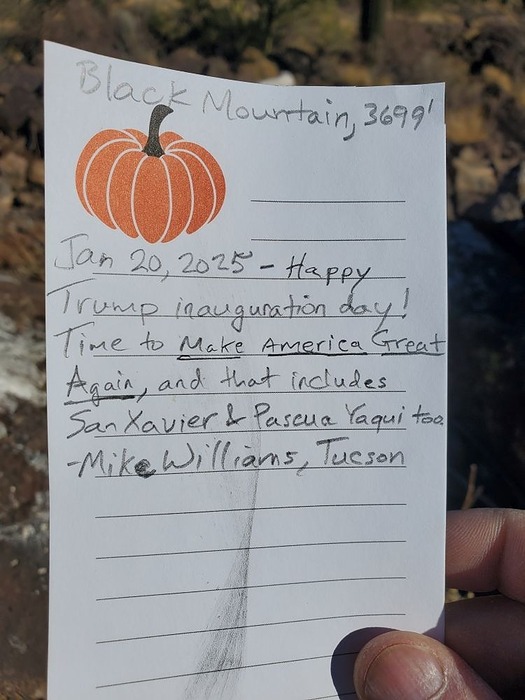 Black Mountain, 3699'
Jan 20, 2025 - Happy
Trump inauguration day!
Time to Make America Great
Again, and that includes
San Xavier & Pascua Yaqui too
-Mike Williams, Tucson